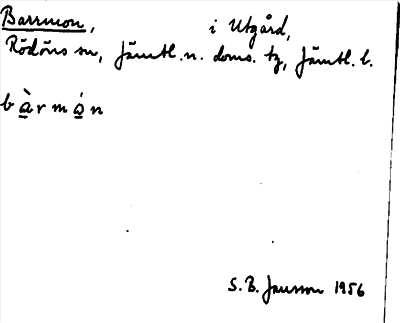 Barrmon, i Utgård,
Rödöns sn, Jämtl. n. doms. tg, Jämtl. l.
bàrmán
S. B. Jansson 1956